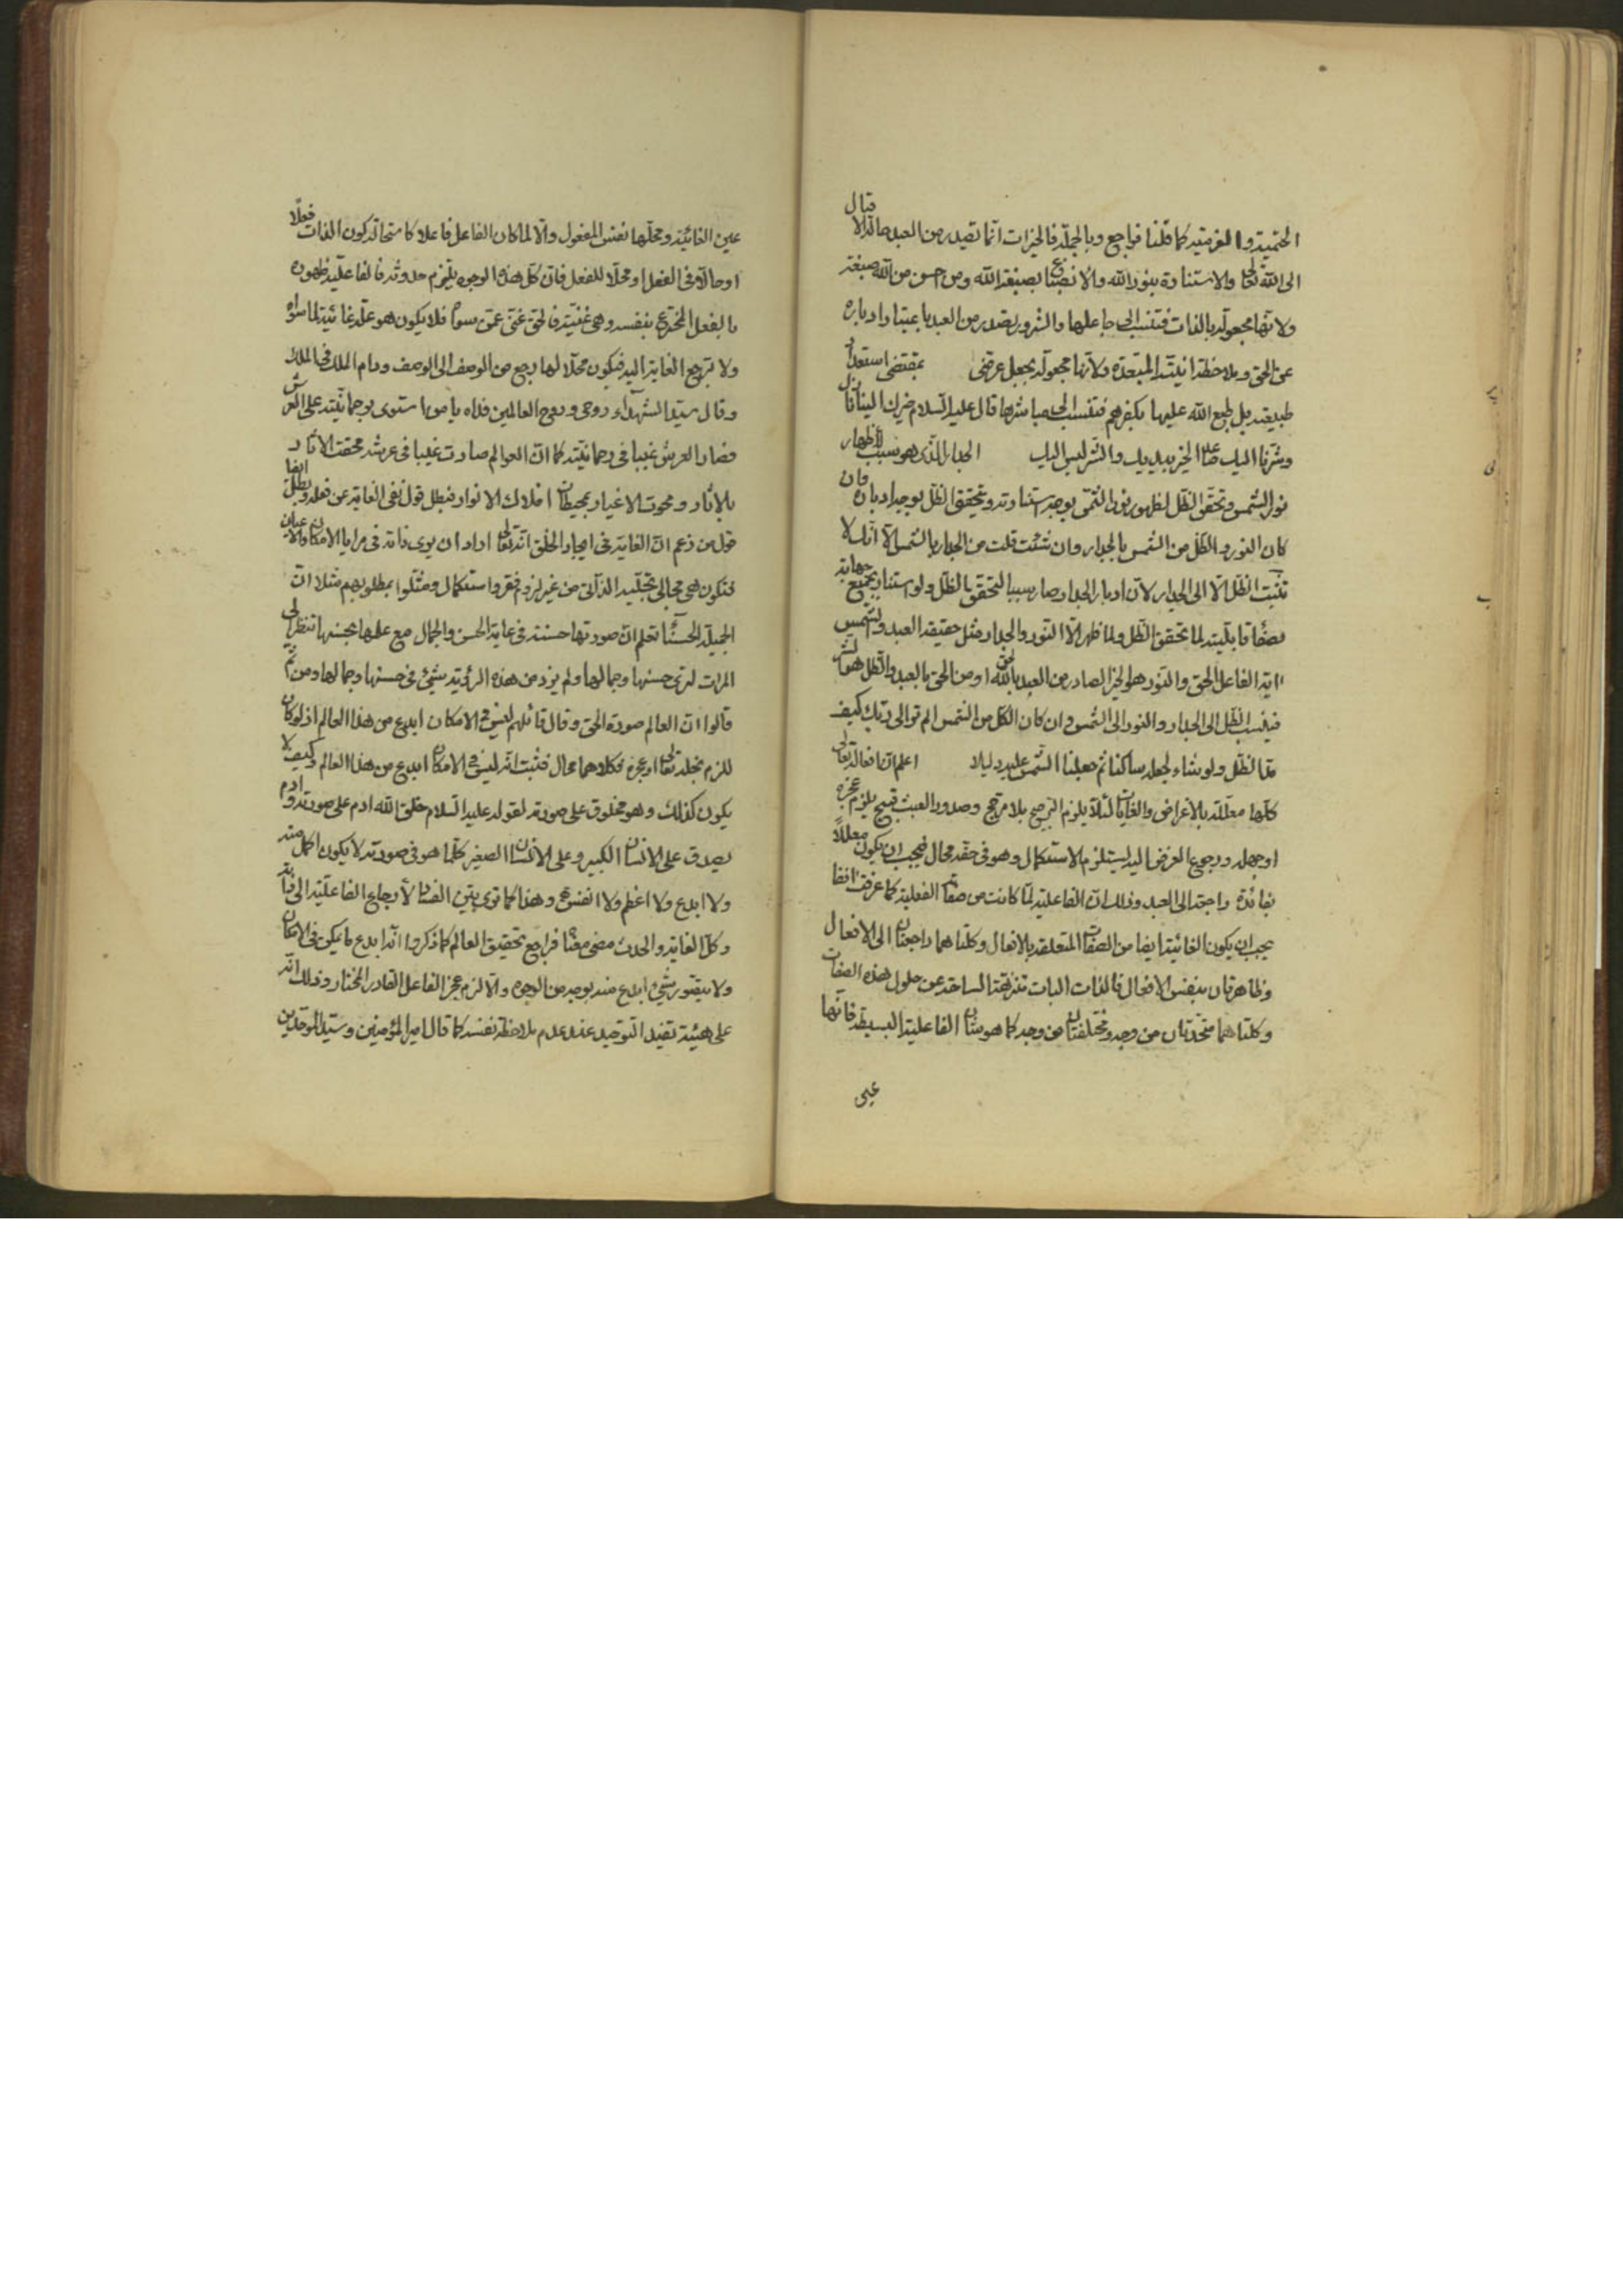 الحتمية والعزمية كما قلنا فراجع وبالجملة فالخيرات انما تصدر من العبد حال اقبال
الى الله تعالى والاستنارة بنور الله والانصباغ بصبغة الله ومن احسن من الله صبغة
ولانها مجعولة بالذات فتنسب الى جاعلها والشرور يصدر من العبد باعتبار ادباره
عن الحق وملاحظة انيته المبتعدة ولانها مجعولة بجعل عرضى بمقتضى استعداد
طبيعته بل طبع الله عليها بكفرهم فتنسب الى مباشرها قال عليه السلام خيرك الينا نازل
وشرنا اليك صاعد الخير بيديك والشر ليس اليك الجدار الذى هو سبب لاظهار
نور الشمس وتحقق الظل لظهور نور الشمس بوجه استنارته وتحقق الظل بوجه ادباره فان
كان النور والظل من الشمس بالجدار وان شئت قلت من الجدار بالشمس الا انك لا
تنسب الظل الا الى الجدار لان ادبار الجدار صار سببا لتحقق الظل ولو استنار بجميع جهاته
بصفاء قابليته لما تحقق الظل ولما ظهر الا النور والجدار مثل حقيقة العبد والشمس
اية الفاعل الحق والنور هو الخير الصادر من العبد بالله او من الحق بالعبد والظل هو الشر
فينسب الظل الى الجدار والنور الى الشمس وان كان الكل من الشمس الم تر الى ربك كيف
مد الظل ولو شاء لجعله ساكنا ثم جعلنا الشمس عليه دليلا اعلم ان افعاله تعالى
كلها معللة بالاغراض والغايات لئلا يلزم الترجيح بلا مرجح وصدور العبث قبيح يلزم عجزه
او جهله ورجوع الغرض اليه يستلزم الاستكمال وهو فى حقه محال فيجب ان يكون معللا
بفائدة راجعة الى العبد وذلك ان الفاعلية لما كانت من صفاته الفعلية كما عرفت انفا
يجب ان يكون الغائية ايضا من الصفات المتعلقة بالافعال وكلتاهما راجعتان الى الافعال
وظاهرتان بنفس الافعال فالذات البات تنزهت الساحة عن حلول هذه الصفات
وكلتاهما متحدتان من وجه ومختلفتان من وجه كما هو شان الفاعلية البسيطة فانها
عين
عين الغائية ومحلها نفس المفعول والا لما كان الفاعل فاعلا كاستحالة كون الذات فعلا
او حالا فى الفعل او محلا للفعل فان كل هذه الوجوه يلتزم حدوثه فالفاعلية ظهوره
بالفعل المخترع بنفسه وهى غنية فالحق غنى عمن سواه فلا يكون هو علة غائية لما سواه
ولا ترجع الغاية اليه فيكون محلا لها رجع من الوصف الى الوصف ودام الملك فى الملك
وقال سيد الشهداء روحى وروح العالمين فداه يا من استوى برحمانيته على العرش
فصار العرش غيبا فى رحمانيته كما ان العوالم صارت غيبا فى عرشه محقت الاثار
بالاثار ومحوت الاغيار بمحيطات افلاك الانوار فبطل قول نفى الغاية عن فعله وبطل ايضا
قول من زعم ان الغاية فى ايجاد الخلق انه تعالى اراد ان يرى ذاته فى مرايا الامكان والاعيان
فتكون هى مجالى تجليه الذاتى من غير لزوم فقر واستكمال ومثلوا بمطلوبهم مثلا ان
الجميلة الحسناء تعلم ان صورتها حسنة فى غاية الحسن والجمال مع علمها بحسنها تنظر الى
المرات لترى حسنها وجمالها ولم يزد من هذه الرؤية شيئ فى حسنها وجمالها ومن ثم
قالوا ان العالم صورة الحق وقال قائلهم ليس فى الامكان ابدع من هذا العالم اذ لو كان
للزم بخله تعالى او عجزه وكلاهما محال فثبت انه ليس فى الامكان ابدع من هذا العالم وكيف لا
يكون كذلك وهو مخلوق على صورته لقوله عليه السلام خلق الله ادم على صورته وادم
يصدق على الانسان الكبير وعلى الانسان الصغير كلما هو فى صورته لا يكون اكمل منه
ولا ابدع ولا اعظم ولا انفس وهذا كما ترى بين الفساد لارجاع الفاعلية الى ذاته
وكل الغاية والحدث مضى معنا فراجع تحقيق العالم كما ذكروا انه ابدع ما يمكن فى الامكان
ولا يتصور شيئ ابدع منه بوجه من الوجوه والا لزم عجز الفاعل القادر المختار وذلك انه
على هيئة تفيد التوحيد عند عدم ملاحظة نفسه كما قال امير المؤمنين وسيد الموحدين